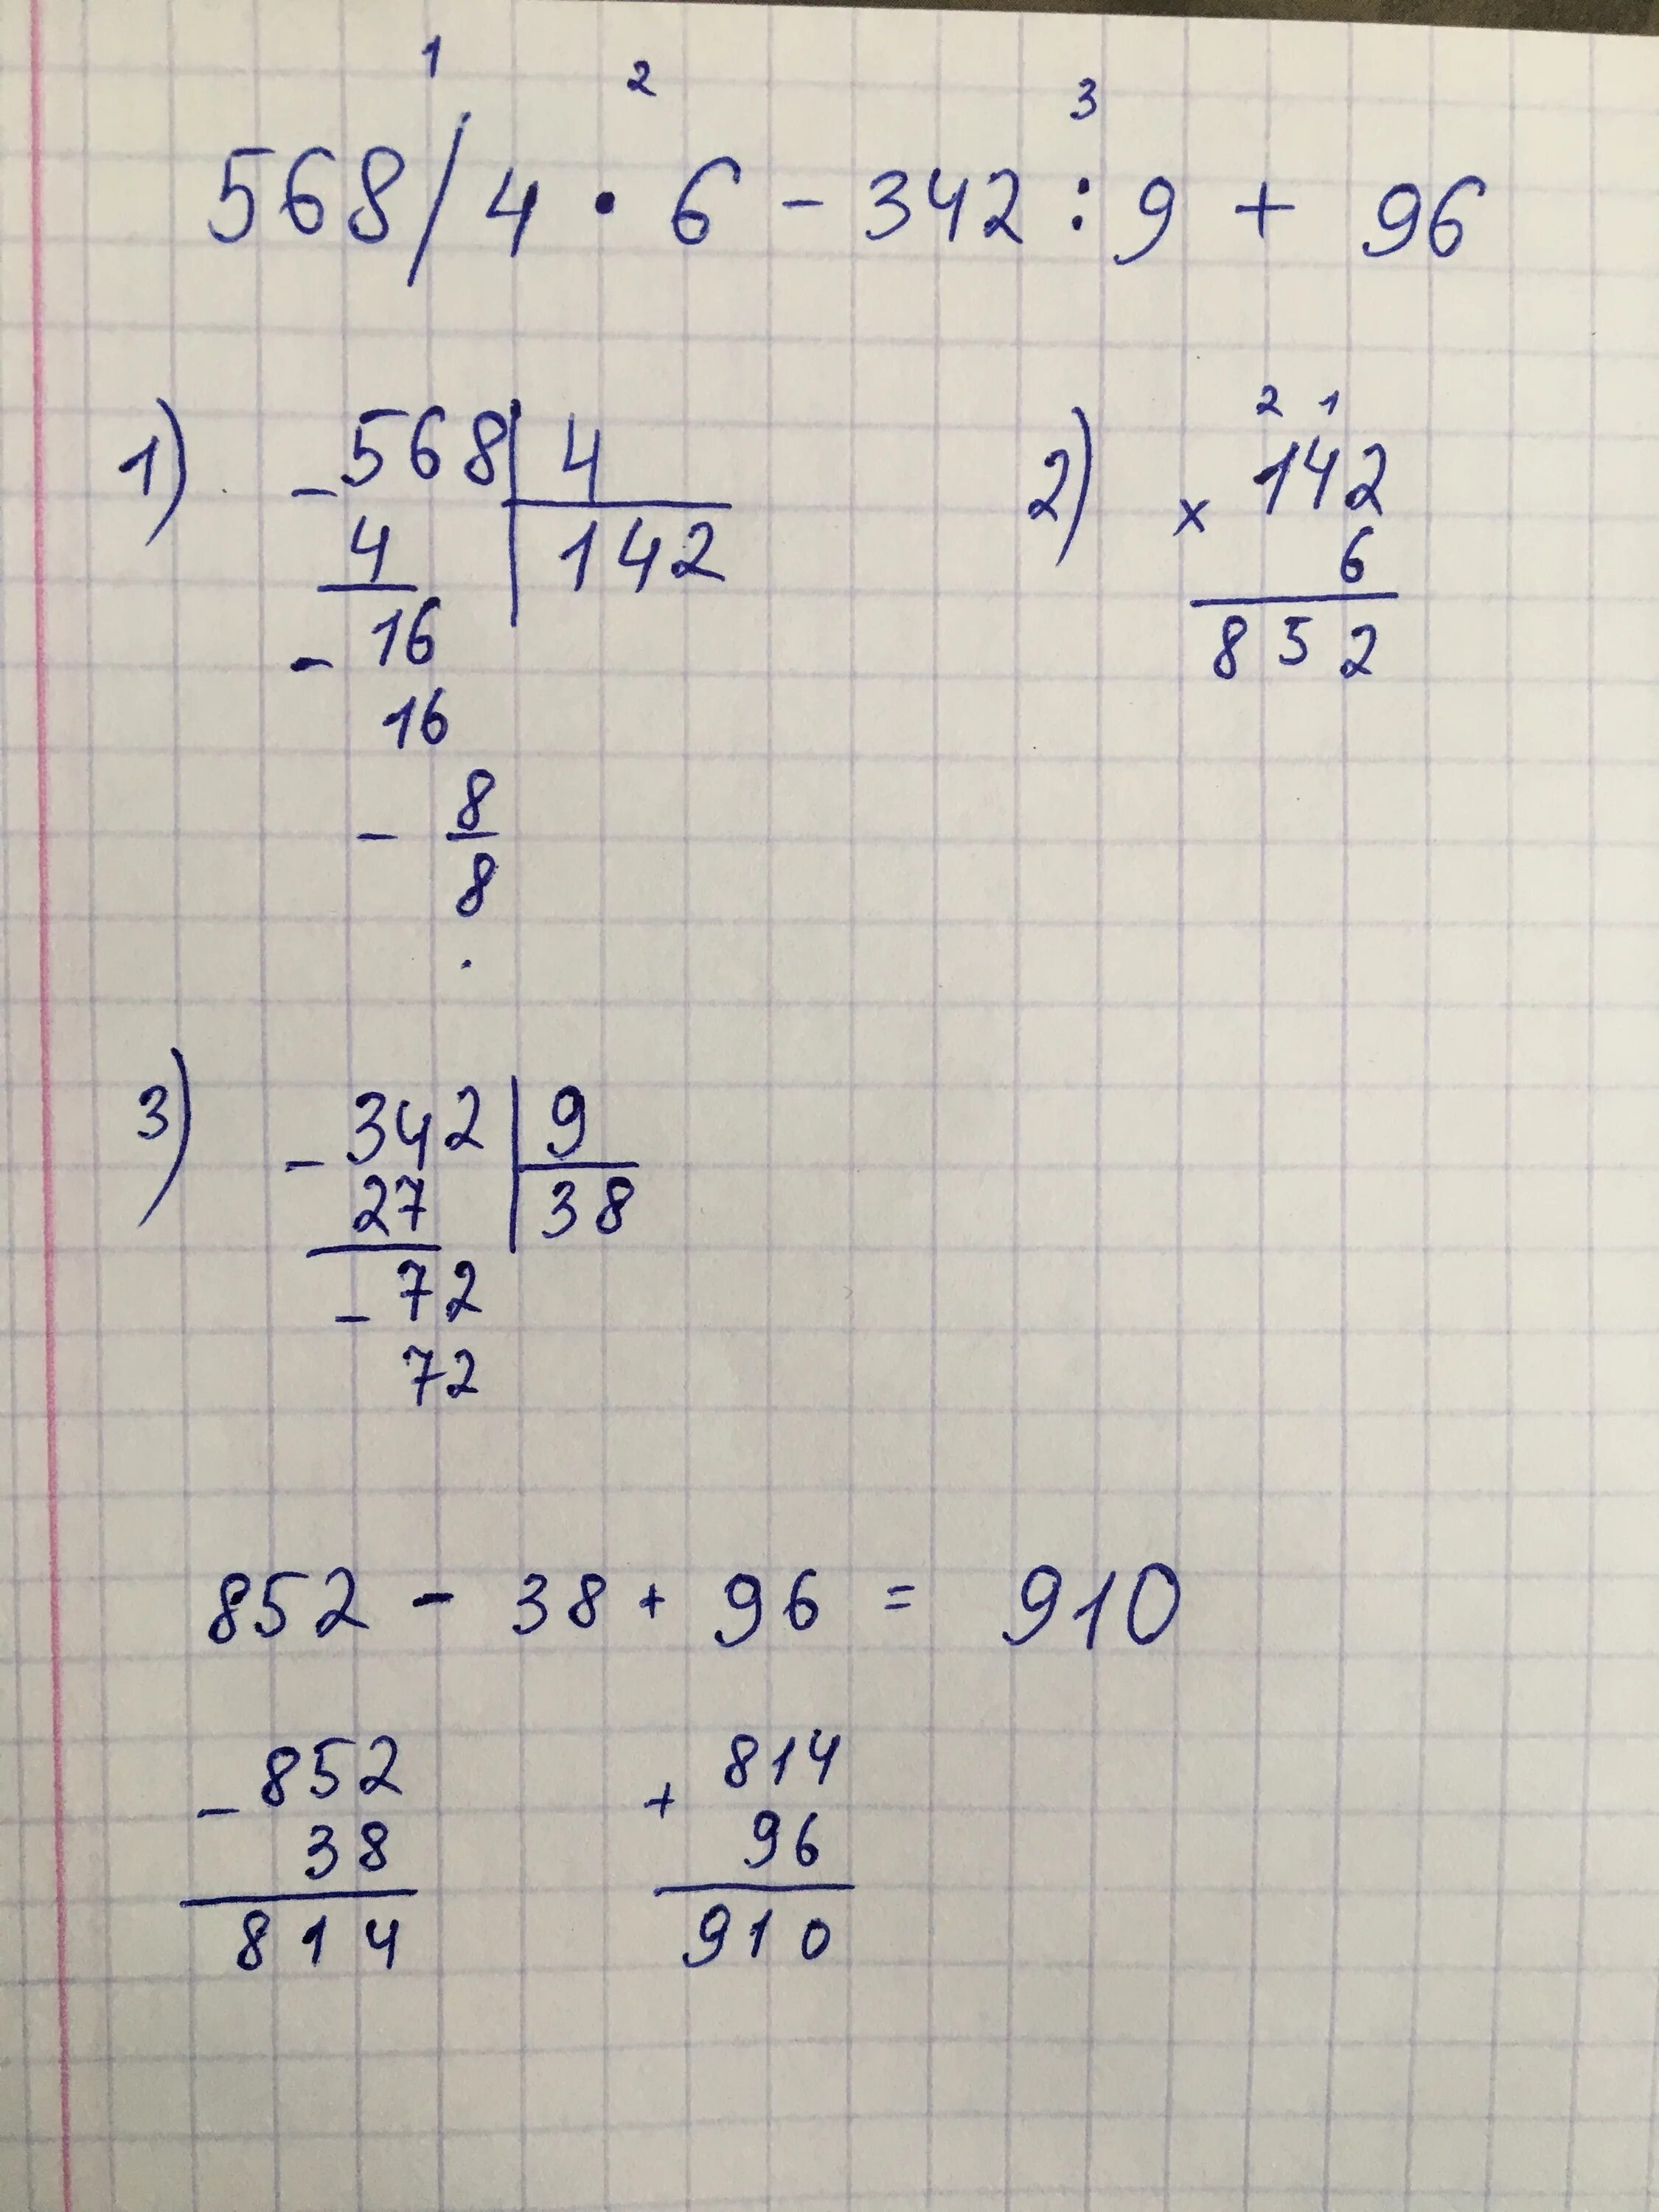 1 2 3
568/4 · 6 - 342 : 9 + 96
1) - 568 | 4
4 | 142
- 16
16
- 8
8
2) 2 1
142
× 6
852
3) - 342 | 9
27 | 38
- 72
72
852 - 38 + 96 = 910
- 852
38
814
+ 814
96
910